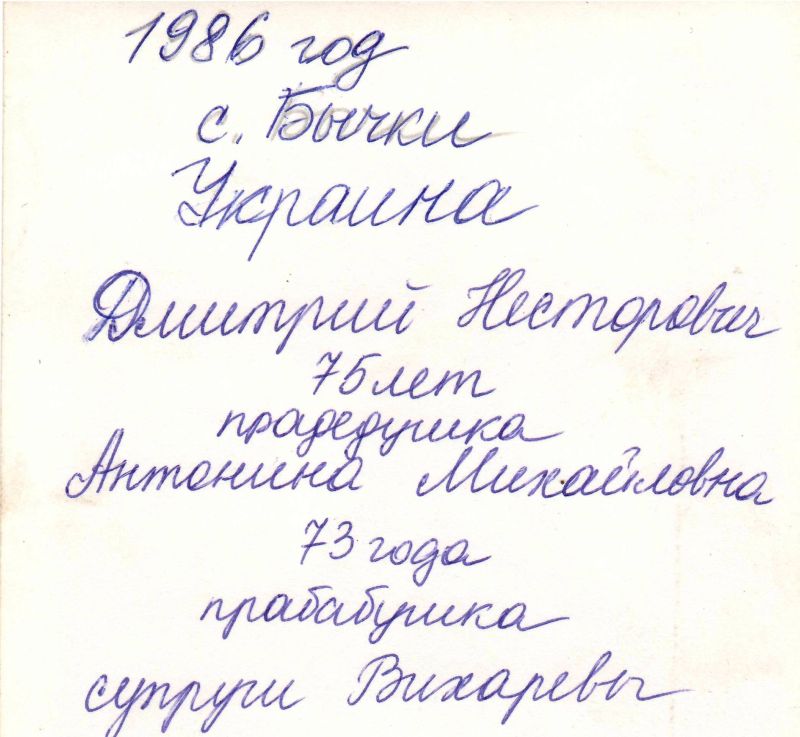 1986 год
с. Бычки
Украина
Дмитрий Несторович
75 лет
прадедушка
Антонина Михайловна
73 года
прабабушка
супруги Вихаревы